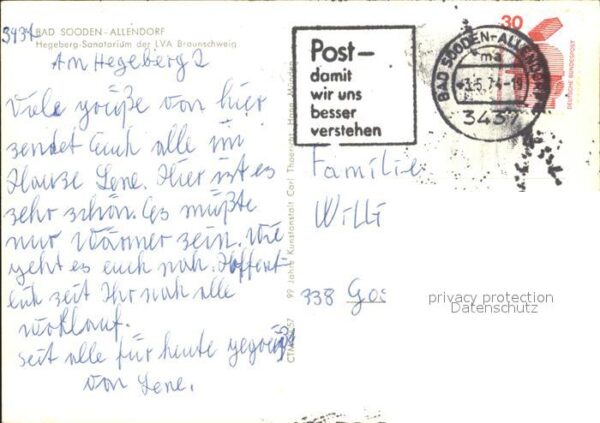 3437 BAD SOODEN - ALLENDORF
Hegeberg-Sanatorium der LVA Braunschweig
Am Hegeberg 2
Viele grüße von hier
sendet Euch alle im
Hause Lene. Hier ist es
sehr schön. Es müßte
nur Wärmer sein. Wie
geht es euch noh. Hoffent-
lich seit Ihr noh alle
wohlauf.
seit alle für heute gegrüßt
von Lene.
99 Jahre Kunstanstalt Carl
Post–
damit
wir uns
besser
verstehen
BAD SOODEN-ALLENDORF
3437
30
DEUTSCHE BUNDESPOST
Familie
Willi
338 Gos
privacy protection
Datenschutz